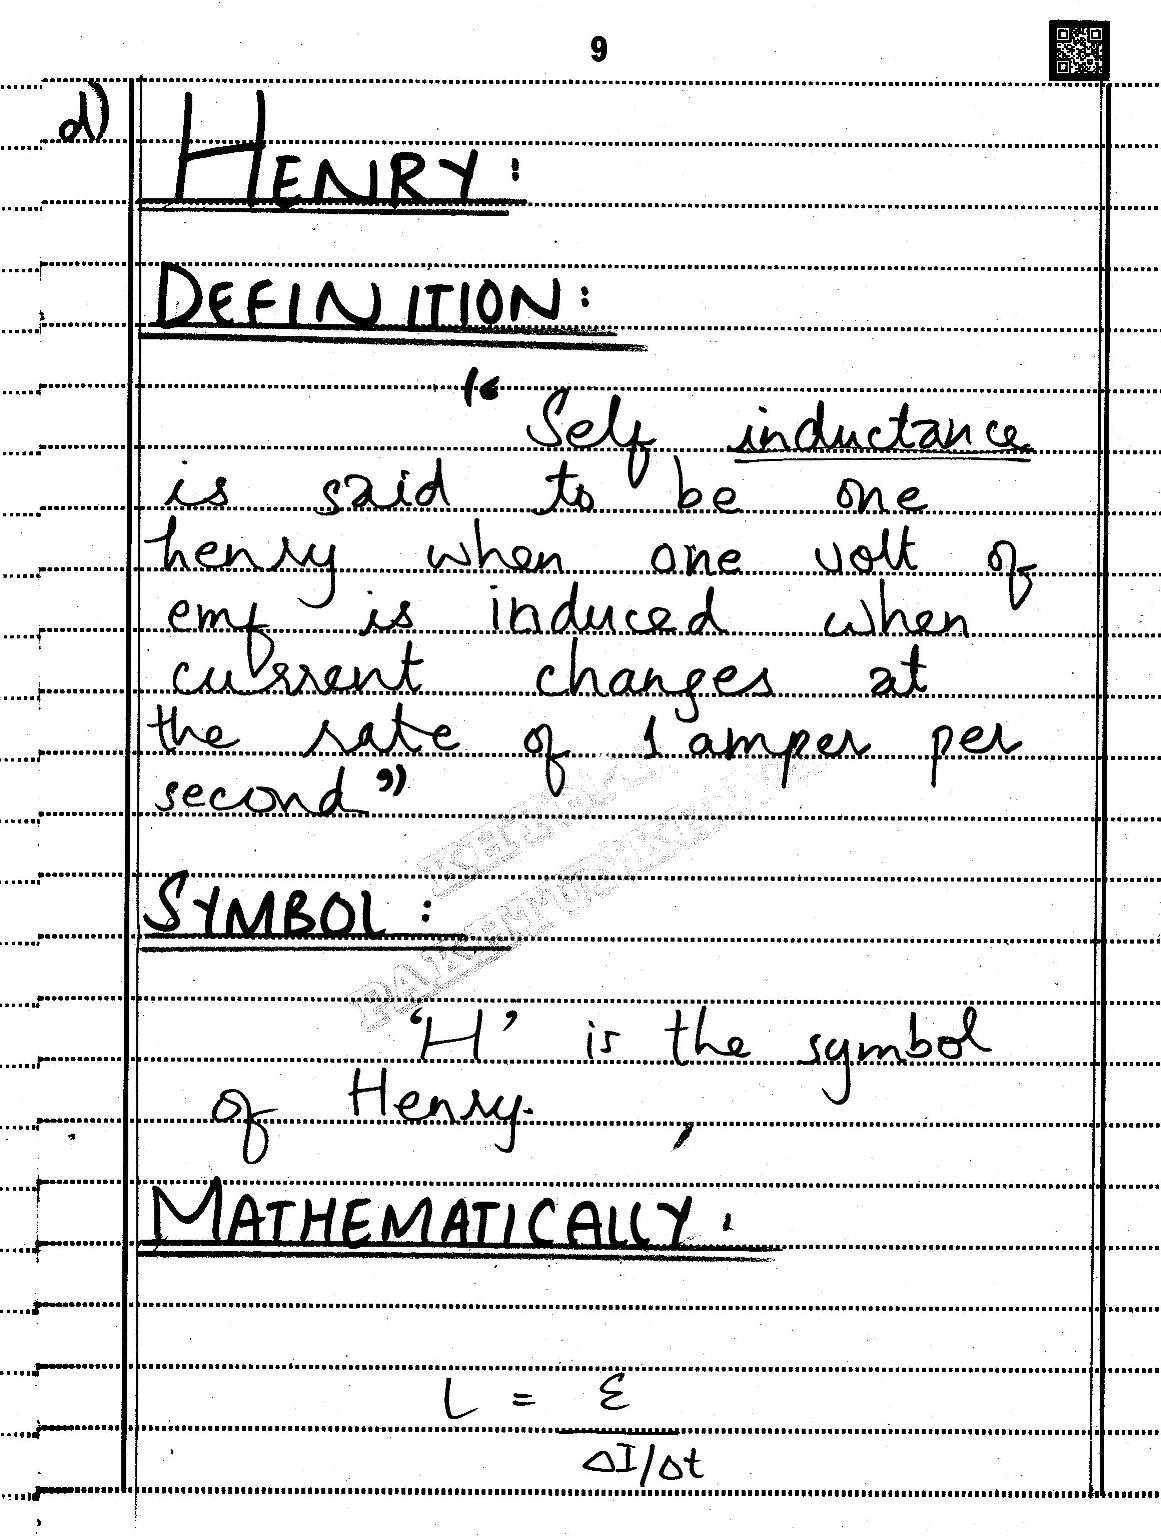 9
d)
HENRY:
DEFINITION:
“Self inductance
is said to be one
henry when one volt of
emf is induced when
current changes at
the rate of 1 amper per
second”
KHYBER
PAKHTUNKHWA
SYMBOL:
‘H’ is the symbol
of Henry.
MATHEMATICALLY.
L = ε
ΔI/Δt